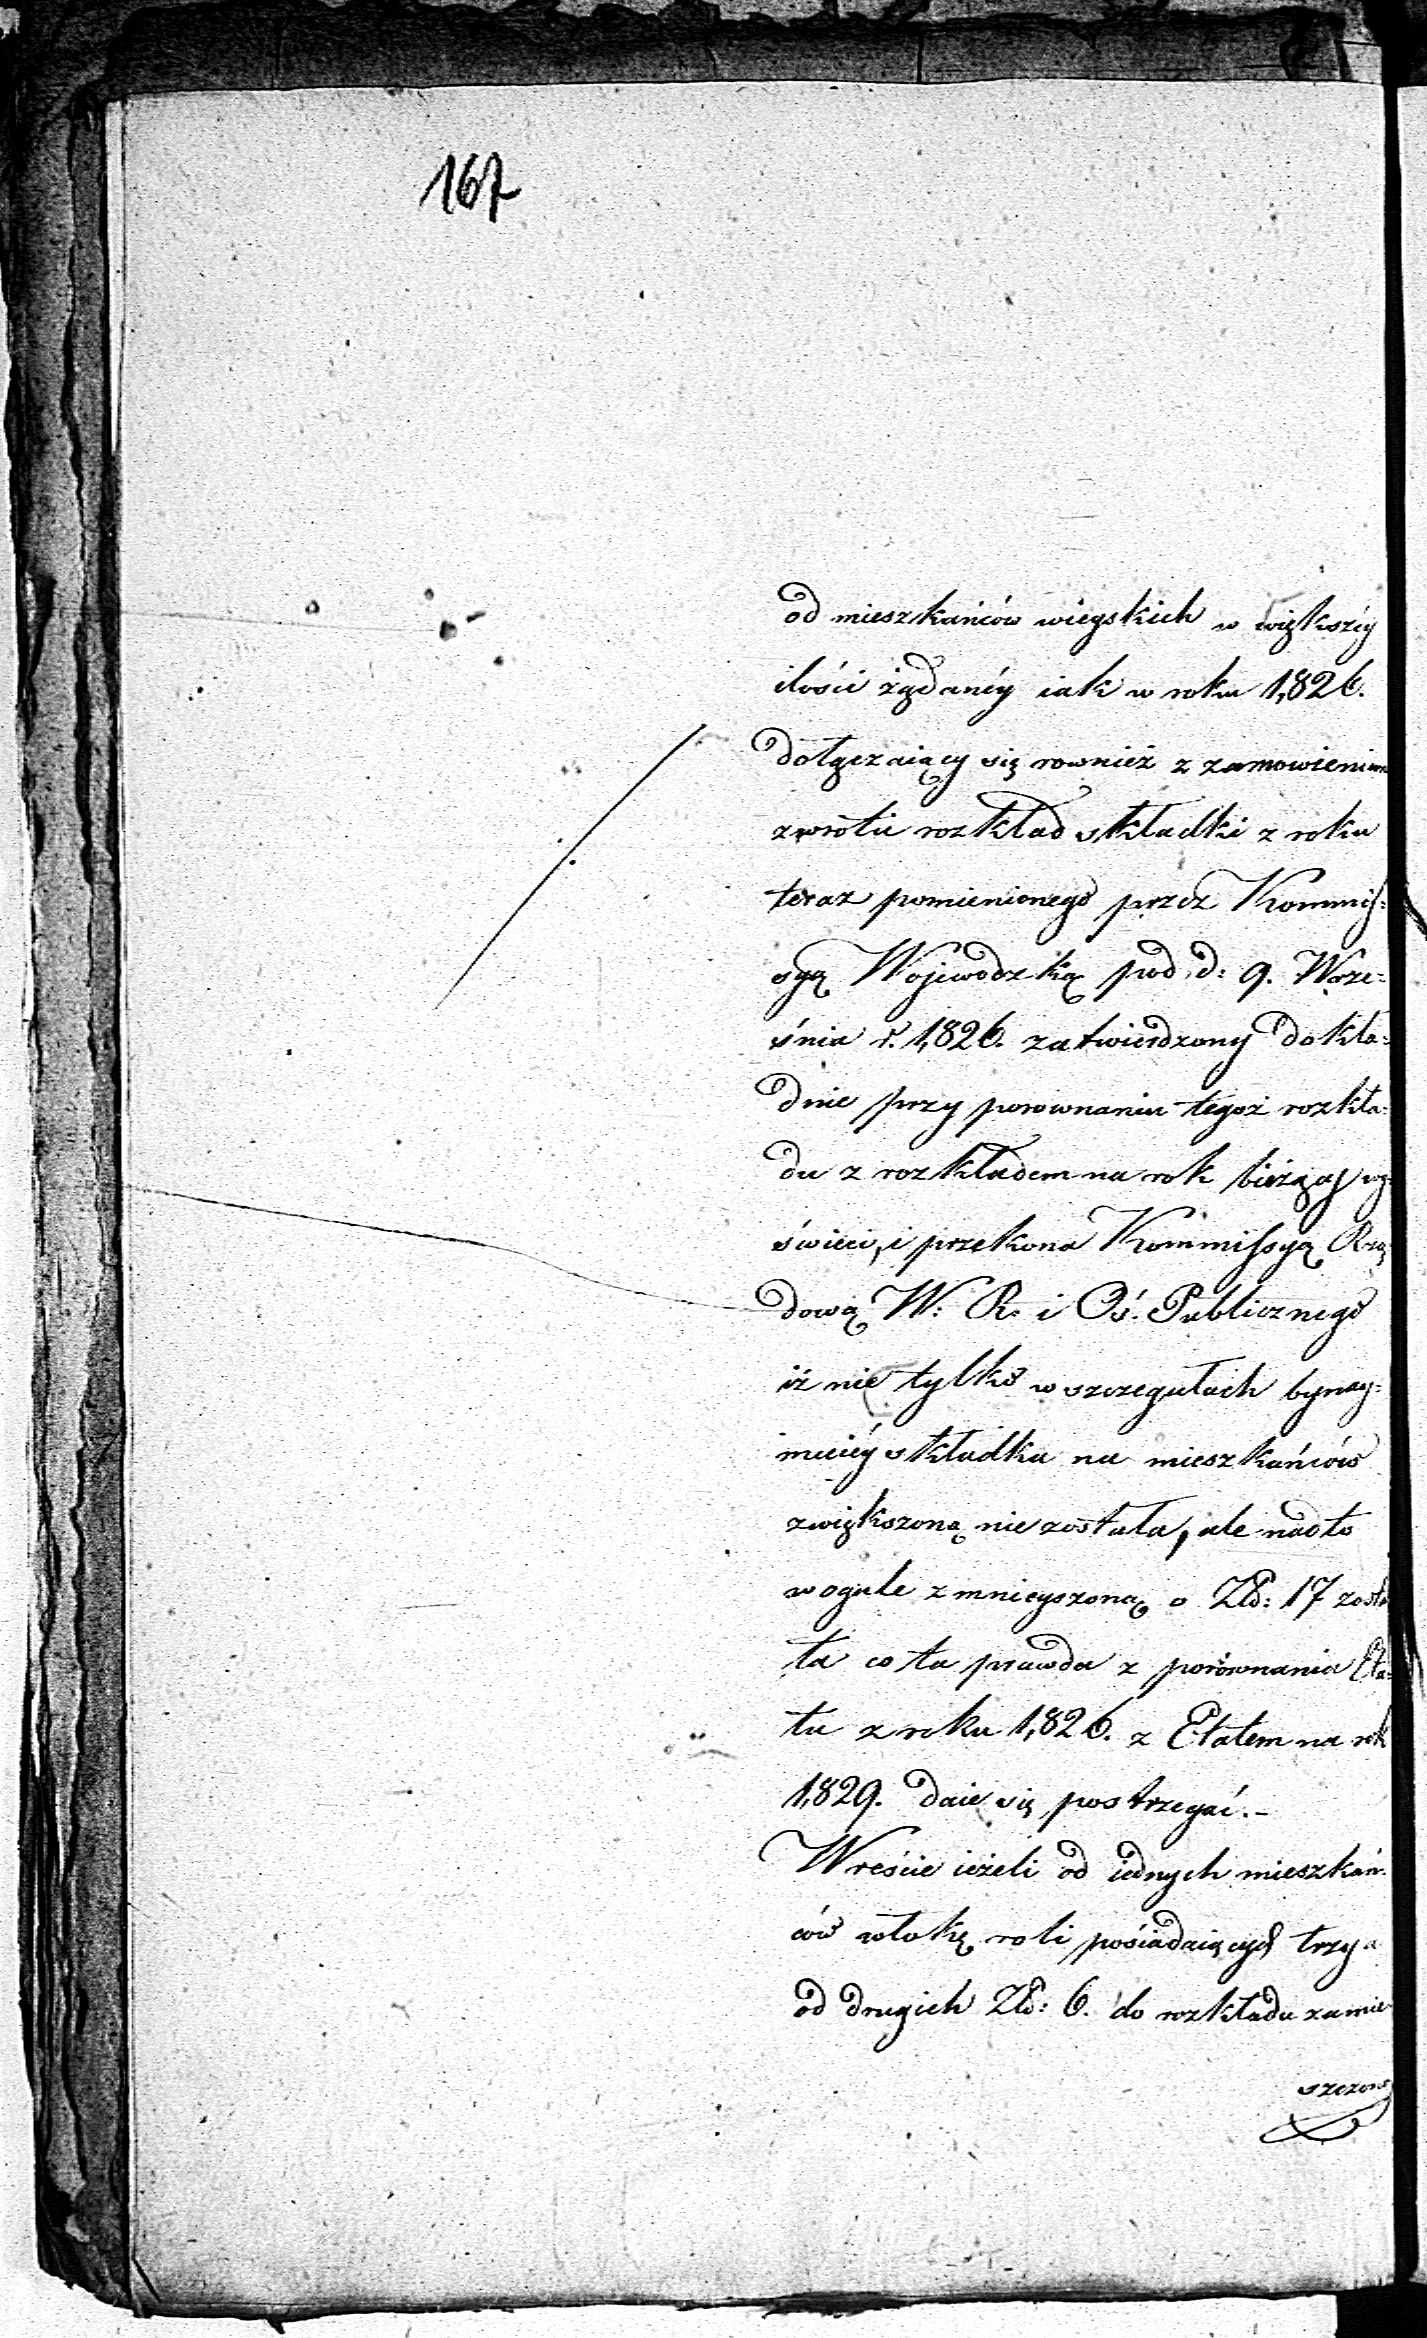 167
od mieszkańców wieyskich w większéy
ilości żądanéy iak w roku 1,826.
dołączaiący się rownież z zamowieniem
zwrotu rozkład składki z roku
teraz pomienionego przez Kommis=
syą Wojewodzką pod d: 9. Wrze=
śnia r. 1,826. zatwierdzony dokła=
dnie przy porownaniu tegoż rozkła=
du z rozkładem na rok bieżący wy=
świeci, i przekona Kommissyą Rzą
dową W: R. i Oś. Publicznego
iż nie tylko w szczegułach bynay=
mniéy składka na mieszkańców
zwiększoną nie została, ale nadto
wogule zmnieyszoną o Złb: 17 zosta
ła co ta prawda z porównania Eta=
tu z roku 1,826. z Etatem na rok
1,829. daie się postrzegać.-
Wreście ieżeli od iednych mieszkań=
ców włokę roli posiadaiących trzy a
od drugich Złb: 6. do rozkładu zamie
szczono